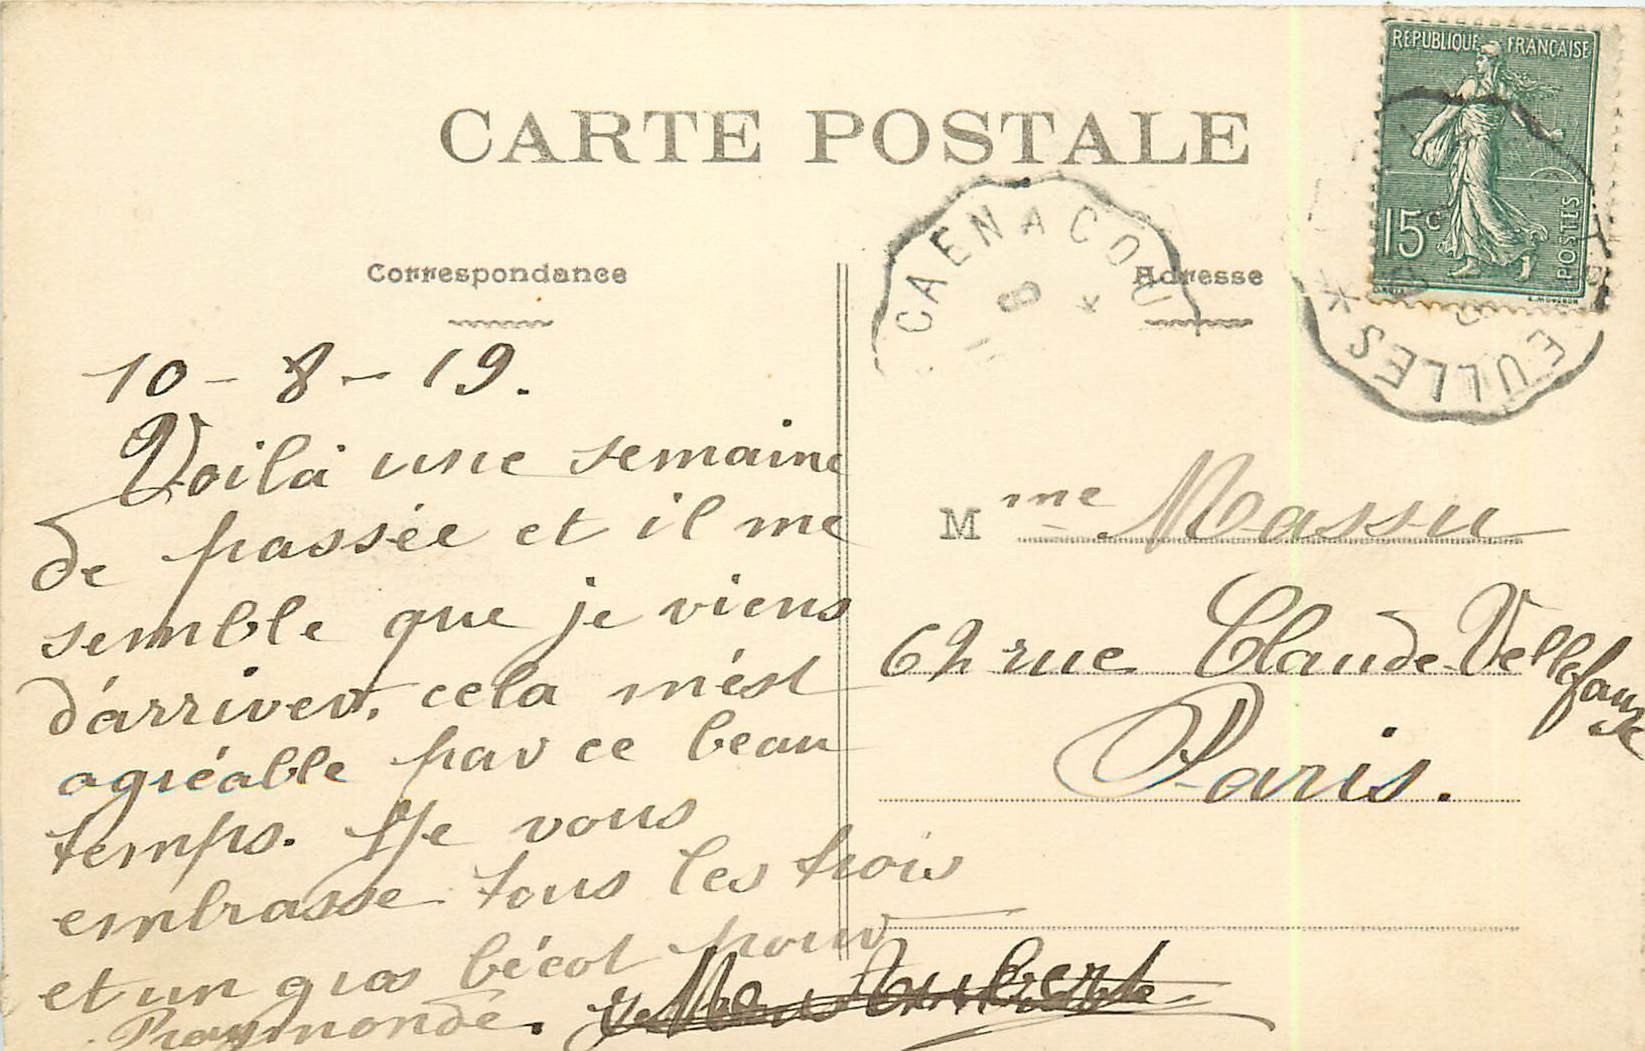 CARTE POSTALE
REPUBLIQUE FRANÇAISE
15c
POSTES
CAEN A COU
8
EULLES
Correspondance
Adresse
10 - 8 - 19.
Voilà une semaine
de passée et il me
semble que je viens
d'arriver, cela m'est
agréable par ce beau
temps. Je vous
embrasse tous les trois
et un gros bécot pour
Raymonde.
Mme Massu
62 rue Claude Vellefaux
Paris.